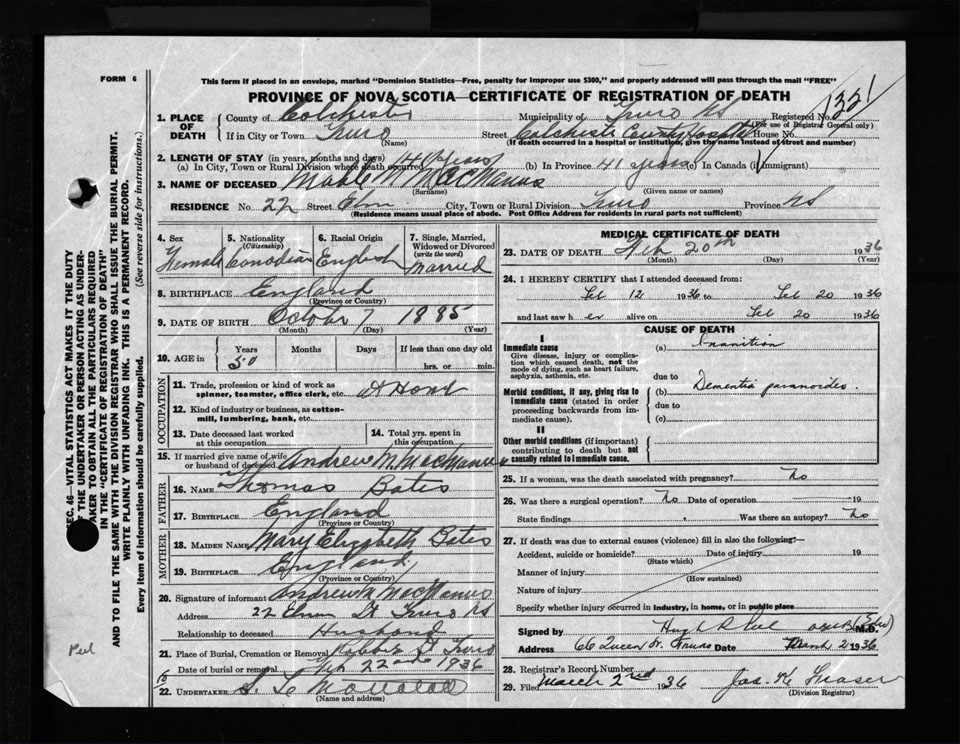 FORM 6
This form if placed in an envelope, marked "Dominion Statistics—Free, penalty for improper use $300," and properly addressed will pass through the mail "FREE"
PROVINCE OF NOVA SCOTIA—CERTIFICATE OF REGISTRATION OF DEATH
1331
1. PLACE OF DEATH
County of Colchester Municipality of Truro NS Registered No.
(For use of Registrar General only)
If in City or Town Truro Street Colchester County Hospital House No.
(Name) (If death occurred in a hospital or institution, give the name instead of street and number)
2. LENGTH OF STAY (in years, months and days)
(a) In City, Town or Rural Division where death occurred 41 years (b) In Province 41 years (c) In Canada (if immigrant)
3. NAME OF DECEASED Mabel MacManus
(Surname) (Given name or names)
RESIDENCE No. 22 Street Elm City, Town or Rural Division Truro Province NS
(Residence means usual place of abode. Post Office Address for residents in rural parts not sufficient)
4. Sex Female
5. Nationality (Citizenship) Canadian
6. Racial Origin English
7. Single, Married, Widowed or Divorced (write the word) Married
8. BIRTHPLACE England
(Province or Country)
9. DATE OF BIRTH October 7 1885
(Month) (Day) (Year)
10. AGE in Years Months Days If less than one day old
50 hrs. or min.
OCCUPATION
11. Trade, profession or kind of work as spinner, teamster, office clerk, etc. At Home
12. Kind of industry or business, as cotton-mill, lumbering, bank, etc.
13. Date deceased last worked at this occupation
14. Total yrs. spent in this occupation
15. If married give name of wife or husband of deceased Andrew M. MacManus
FATHER
16. NAME Thomas Bates
17. BIRTHPLACE England
(Province or Country)
MOTHER
18. MAIDEN NAME Mary Elizabeth Bates
19. BIRTHPLACE England
(Province or Country)
20. Signature of informant Andrew M MacManus
Address 22 Elm St Truro NS
Relationship to deceased Husband
21. Place of Burial, Cremation or Removal Robie St Truro
Date of burial or removal Feb 22nd 1936
22. UNDERTAKER
(Name and address)
MEDICAL CERTIFICATE OF DEATH
23. DATE OF DEATH Feb 20th 1936
(Month) (Day) (Year)
24. I HEREBY CERTIFY that I attended deceased from
Feb 12 1936 to Feb 20 1936
and last saw h er alive on Feb 20 1936
CAUSE OF DEATH
I
Immediate cause
Give disease, injury or complication which caused death, not the mode of dying, such as heart failure, asphyxia, asthenia, etc.
(a) Inanition
due to
Morbid conditions, if any, giving rise to immediate cause (stated in order proceeding backwards from immediate cause).
(b) Dementia paranoides.
due to
(c)
II
Other morbid conditions (if important) contributing to death but not causally related to immediate cause.
25. If a woman, was the death associated with pregnancy? No
26. Was there a surgical operation? No Date of operation 19
State findings Was there an autopsy? No
27. If death was due to external causes (violence) fill in also the following:—
Accident, suicide or homicide? Date of injury 19
(State which)
Manner of injury
(How sustained)
Nature of injury
Specify whether injury occurred in industry, in home, or in public place
Signed by Hugh M.D.
Address 66 Queen St. Truro Date March 2 1936
28. Registrar's Record Number
29. Filed March 2nd 1936 Jas. K Fraser
(Division Registrar)
SEC. 46—VITAL STATISTICS ACT MAKES IT THE DUTY
OF THE UNDERTAKER OR PERSON ACTING AS UNDER-
TAKER TO OBTAIN ALL THE PARTICULARS REQUIRED
IN THE "CERTIFICATE OF REGISTRATION OF DEATH"
AND TO FILE THE SAME WITH THE DIVISION REGISTRAR WHO SHALL ISSUE THE BURIAL PERMIT.
WRITE PLAINLY WITH UNFADING INK. THIS IS A PERMANENT RECORD.
Every item of information should be carefully supplied. (See reverse side for instructions.)